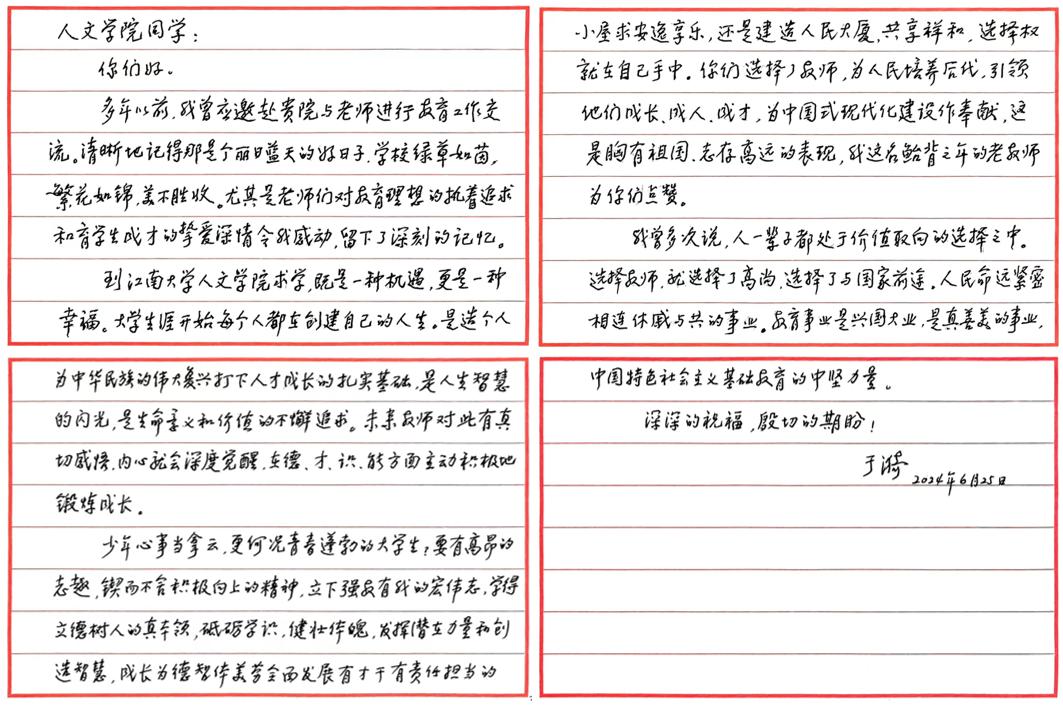 人文学院同学：
你们好。
多年以前，我曾应邀赴贵院与老师进行教育工作交
流。清晰地记得那是个丽日蓝天的好日子，学校绿草如茵，
繁花如锦，美不胜收。尤其是老师们对教育理想的执着追求
和育学生成才的挚爱深情令我感动，留下了深刻的记忆。
到江南大学人文学院求学，既是一种机遇，更是一种
幸福。大学生涯开始每个人都在创建自己的人生。是造个人
小屋求安逸享乐，还是建造人民大厦，共享祥和，选择权
就在自己手中。你们选择了教师，为人民培养后代，引领
他们成长、成人、成才，为中国式现代化建设作奉献，这
是胸有祖国、志存高远的表现，我这名鲐背之年的老教师
为你们点赞。
我曾多次说，人一辈子都处于价值取向的选择之中。
选择教师，就选择了高尚，选择了与国家前途、人民命运紧密
相连休戚与共的事业。教育事业是兴国大业，是真善美的事业，
为中华民族的伟大复兴打下人才成长的扎实基础，是人生智慧
的闪光，是生命意义和价值的不懈追求。未来教师对此有真
切感悟，内心就会深度觉醒，在德、才、识、能方面主动积极地
锻炼成长。
少年心事当拿云，更何况青春蓬勃的大学生？要有高昂的
志趣，锲而不舍积极向上的精神，立下强教有我的宏伟志，学得
立德树人的真本领，砥砺学识，健壮体魄，发挥潜在力量和创
造智慧，成长为德智体美劳全面发展有才干有责任担当的
中国特色社会主义基础教育的中坚力量。
深深的祝福，殷切的期盼！
于漪
2024年6月25日